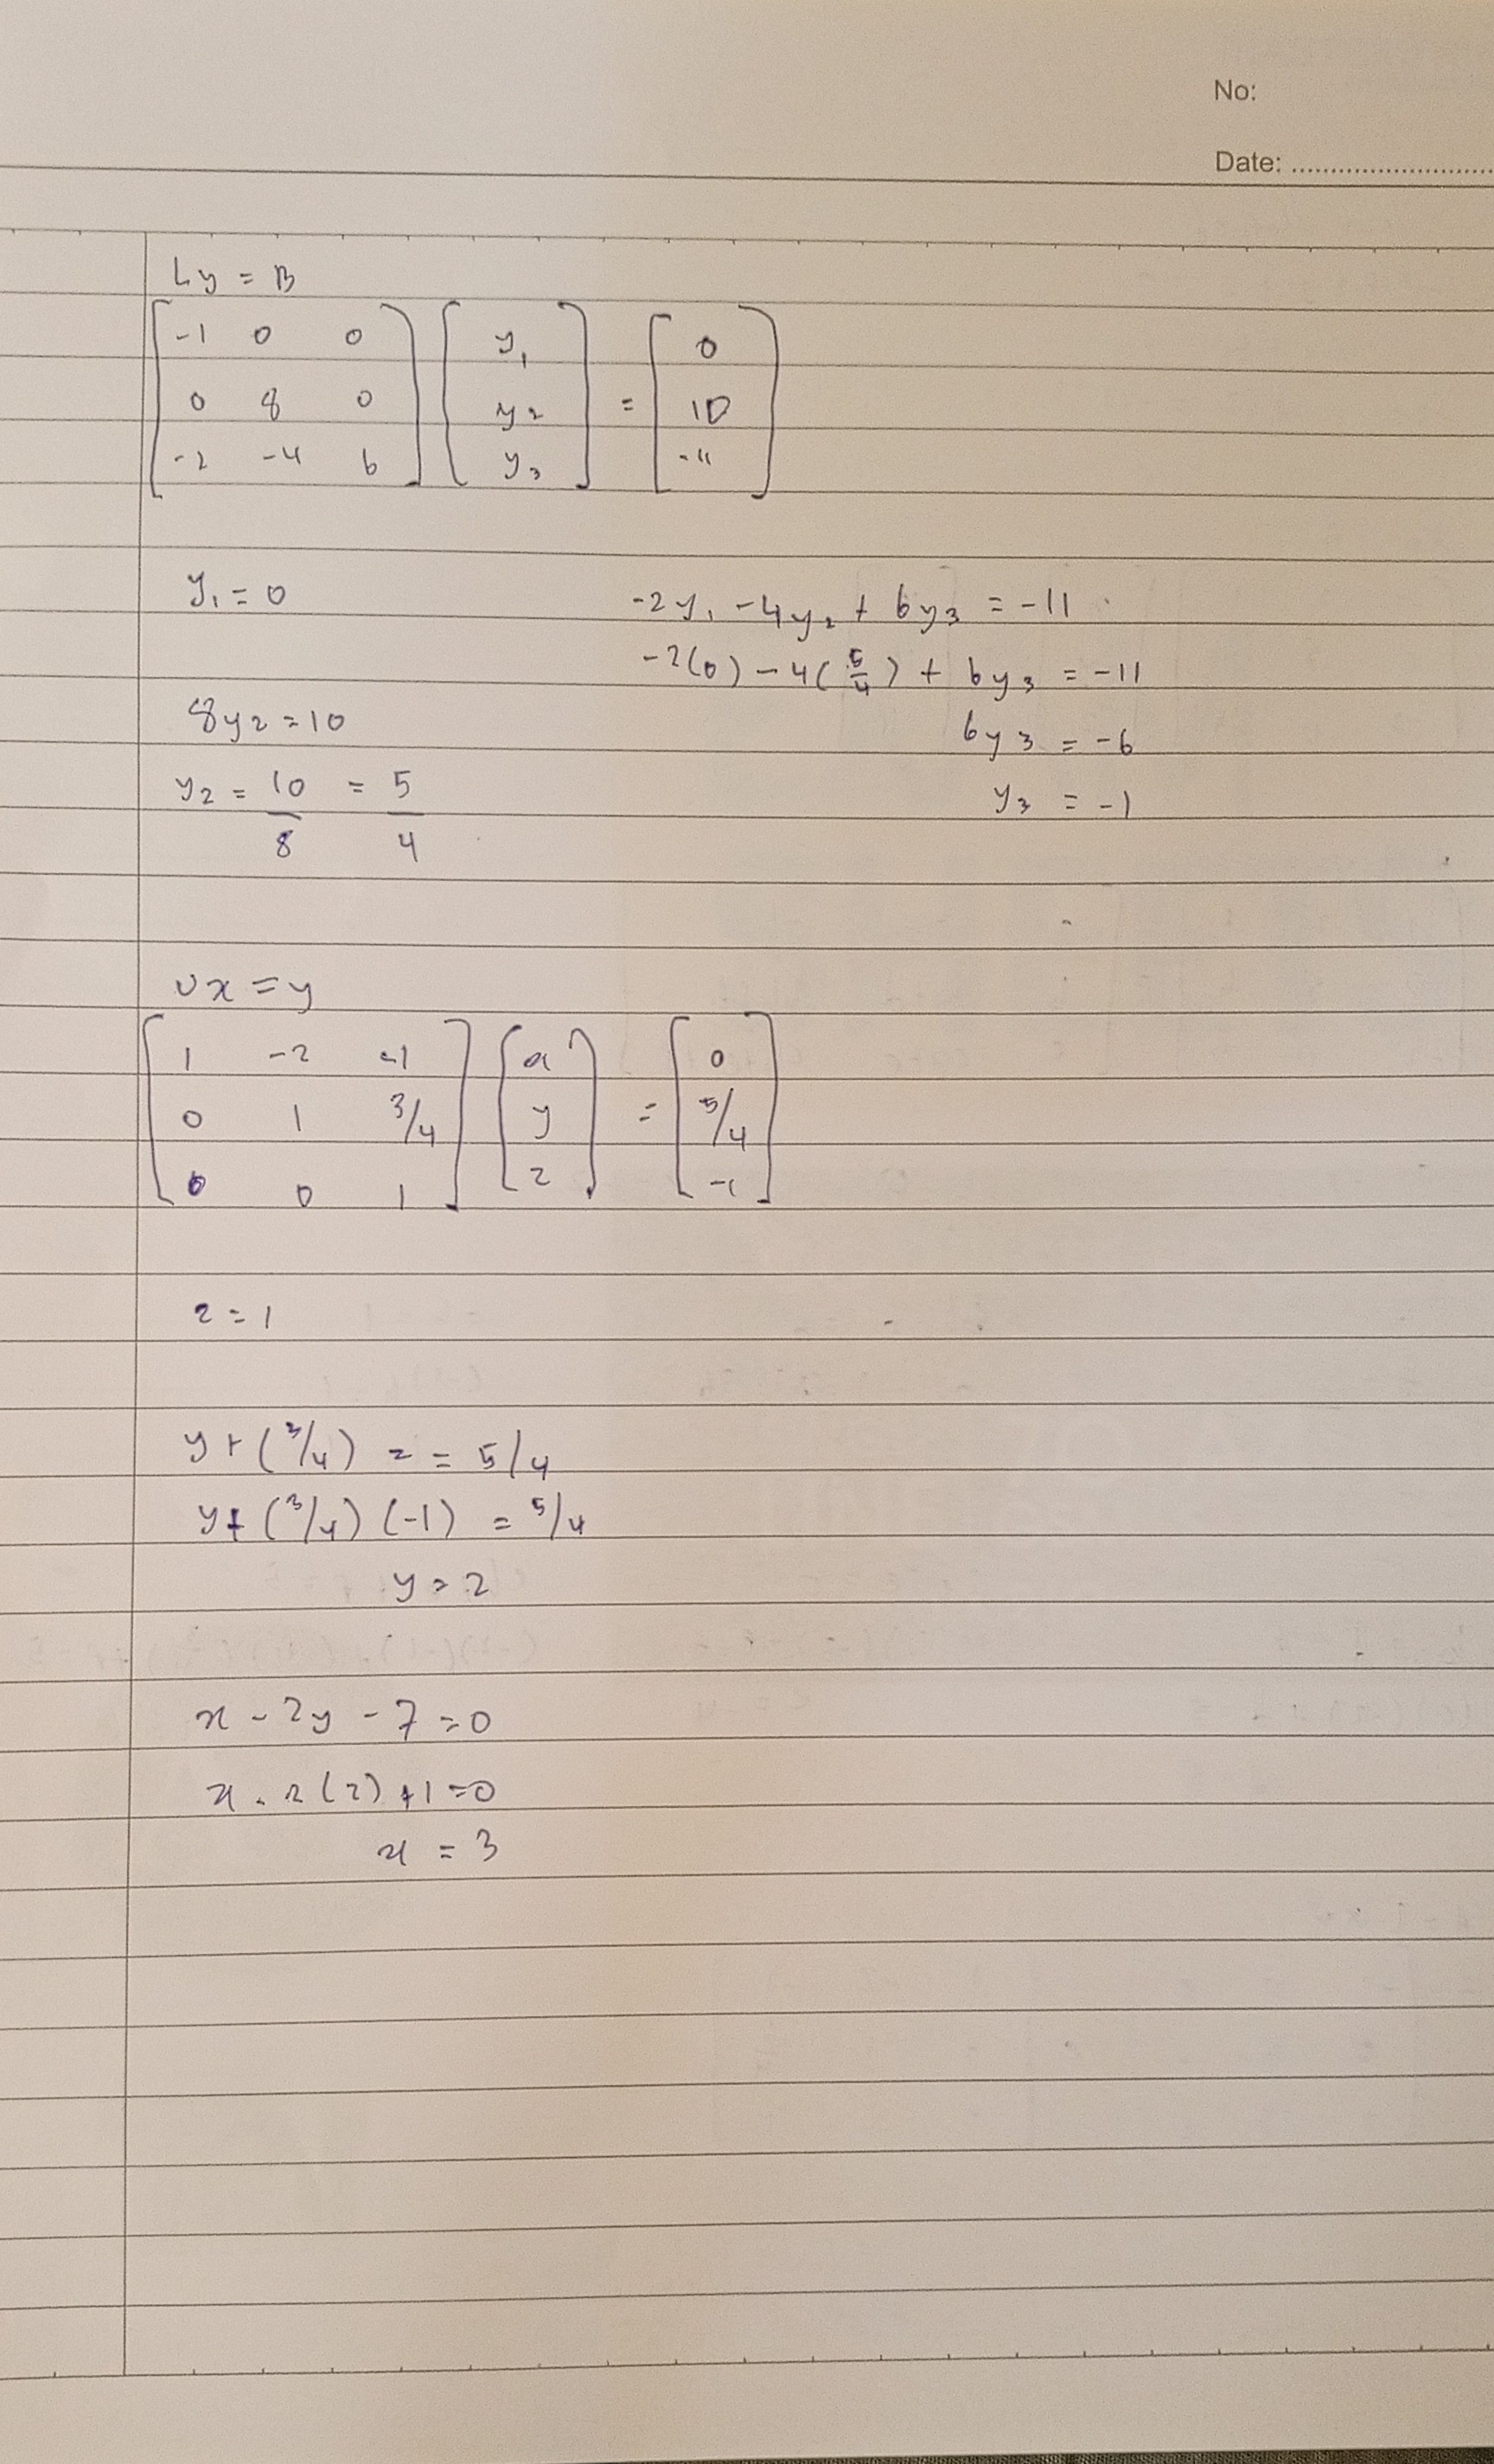 No:
Date: ............................
Ly = B
[ -1 0 0 ] [ y₁ ] = [ 0 ]
[ 0 8 0 ] [ y₂ ] = [ 10 ]
[ -2 -4 6 ] [ y₃ ] [ -11 ]
y₁ = 0
8y₂ = 10
y₂ = 10/8 = 5/4
-2y₁ - 4y₂ + 6y₃ = -11
-2(0) - 4(5/4) + 6y₃ = -11
6y₃ = -6
y₃ = -1
Ux = y
[ 1 -2 -1 ] [ x ] = [ 0 ]
[ 0 1 3/4 ] [ y ] = [ 5/4 ]
[ 0 0 1 ] [ z ] [ -1 ]
z = 1
y + (3/4) z = 5/4
y + (3/4) (-1) = 5/4
y = 2
x - 2y - z = 0
x - 2(2) + 1 = 0
x = 3